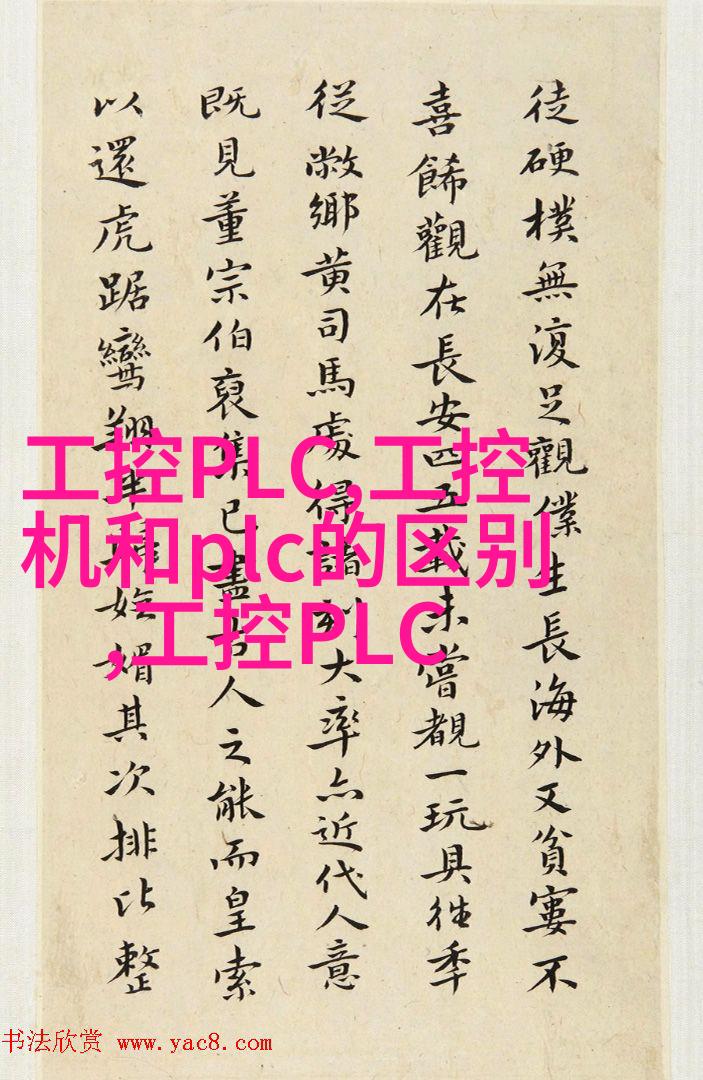 徒硬樸無復足觀僕生長海外又貧窶不
喜餙觀在長安四五載未嘗覩一玩具往秊
從敝鄉黃司馬處得諸刻大率亦近代人意
既見董宗伯裒集已盡古人之能而皇索
以還虎踞鸞翔媚其次排比整
工控PLC,工控
机和plc的区别
,工控PLC
书法欣赏 www.yac8.com